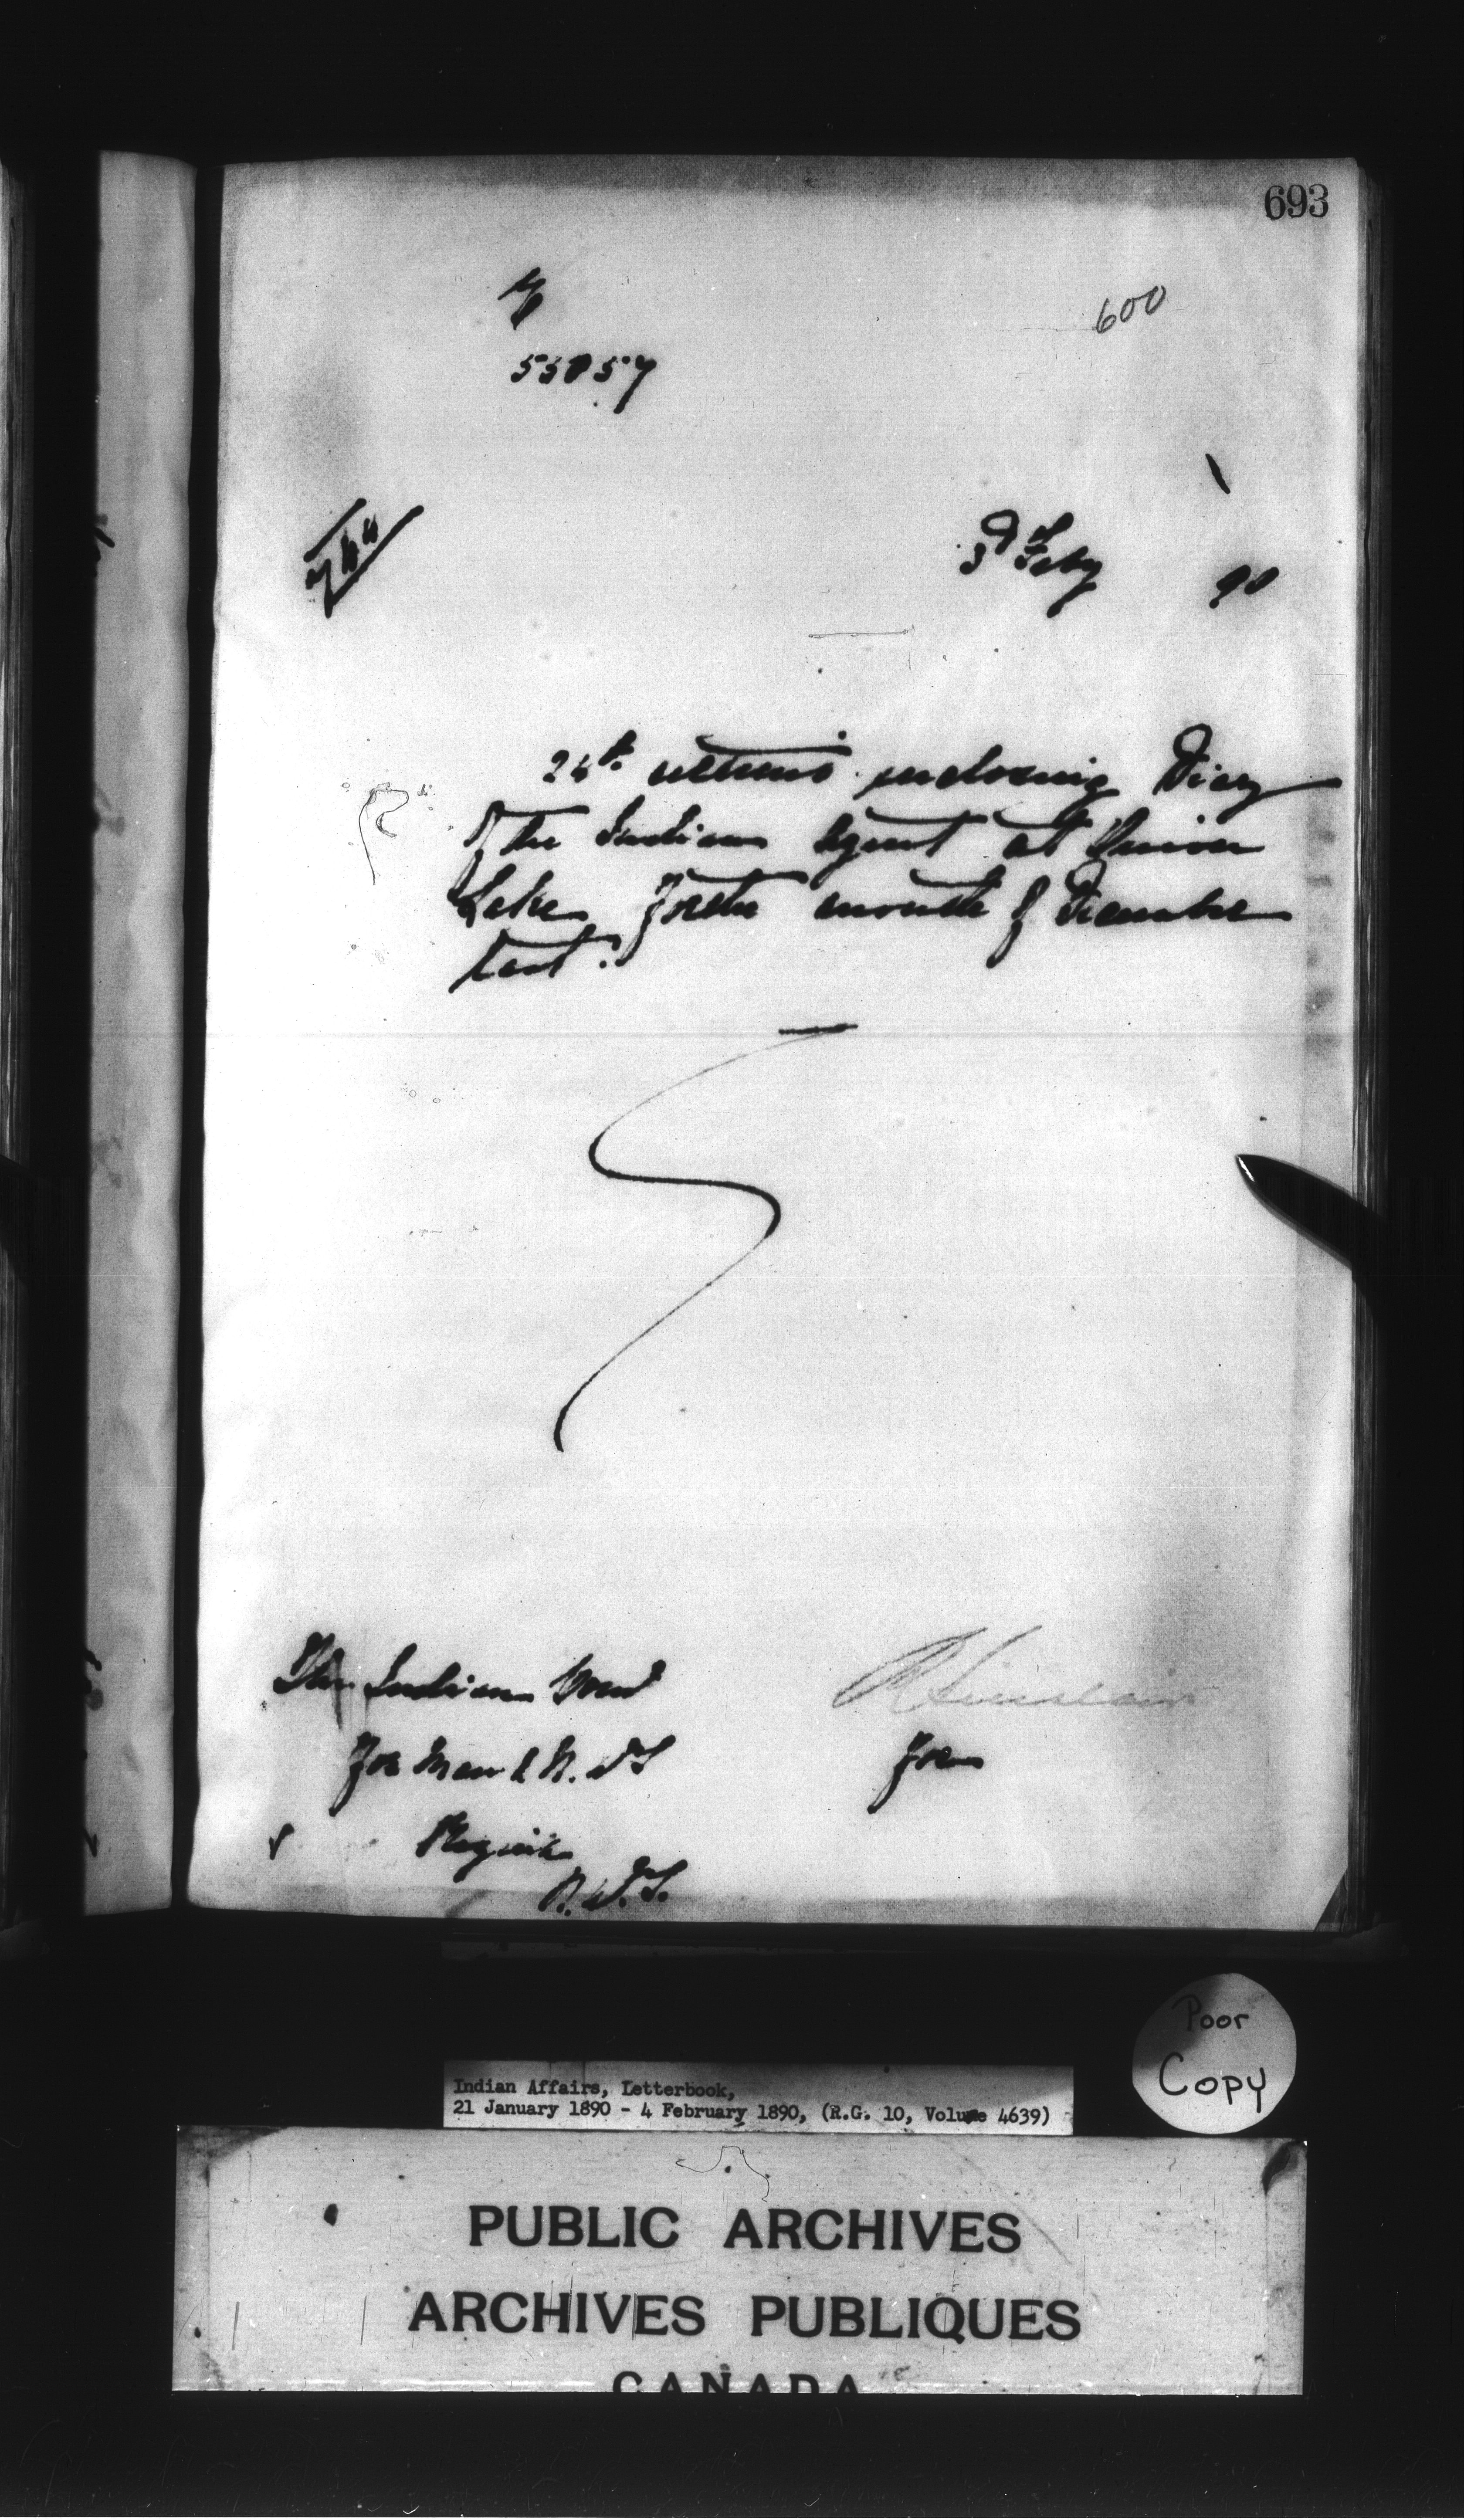 693
600
3d Feby 90
24th ultimo enclosing Diary
of the Indian Agent at Onion
Lake for the month of December
last.
The Indian Comr
for Man & N.W.T
Regina
N.W.T.
R Sinclair
for
Poor
Copy
Indian Affairs, Letterbook,
21 January 1890 - 4 February 1890, (R.G. 10, Volume 4639)
PUBLIC ARCHIVES
ARCHIVES PUBLIQUES
CANADA